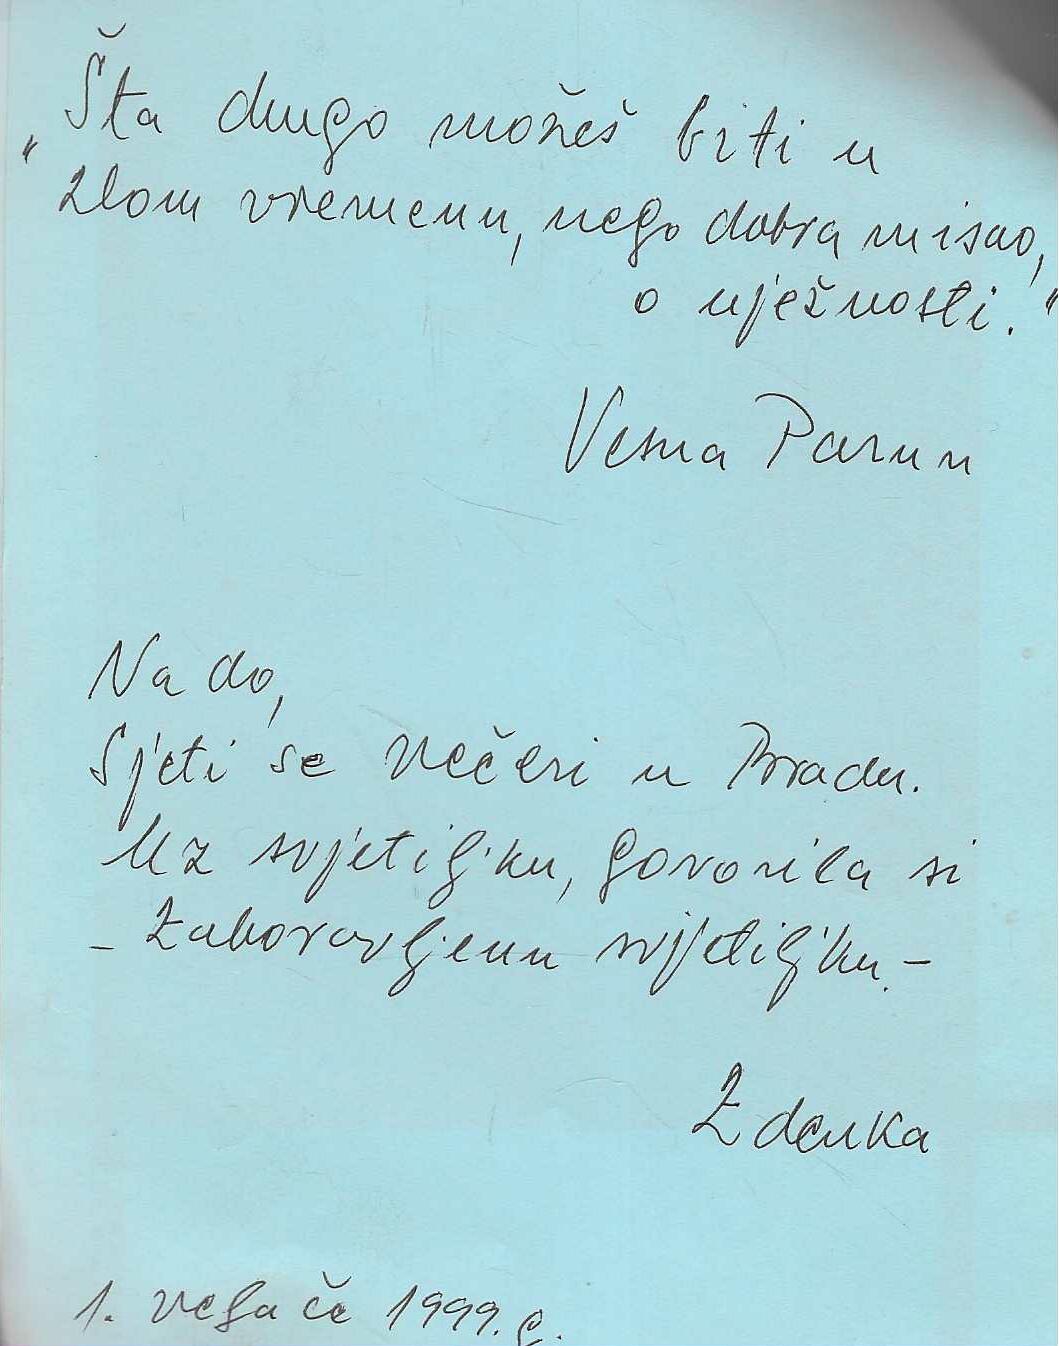 „Šta drugo možeš biti u
zlom vremenu, nego dobra misao,
o nježnosti."
Vesna Parun
Nado,
Sjeti se večeri u Pradu.
Uz svjetiljku, govorila si
- Zaboravljenu svjetiljku. -
Zdenka
1. veljače 1999. g.